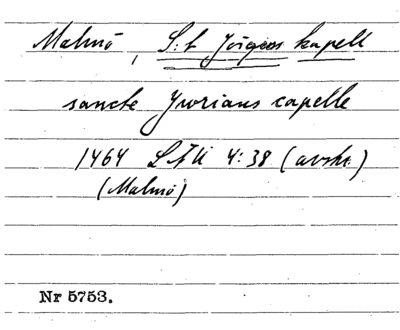 Malmö, S:t Jörgens kapell
sancte Yrorians capelle
1464 LTU 4:38 (avskr.)
(Malmö)
Nr 5753.